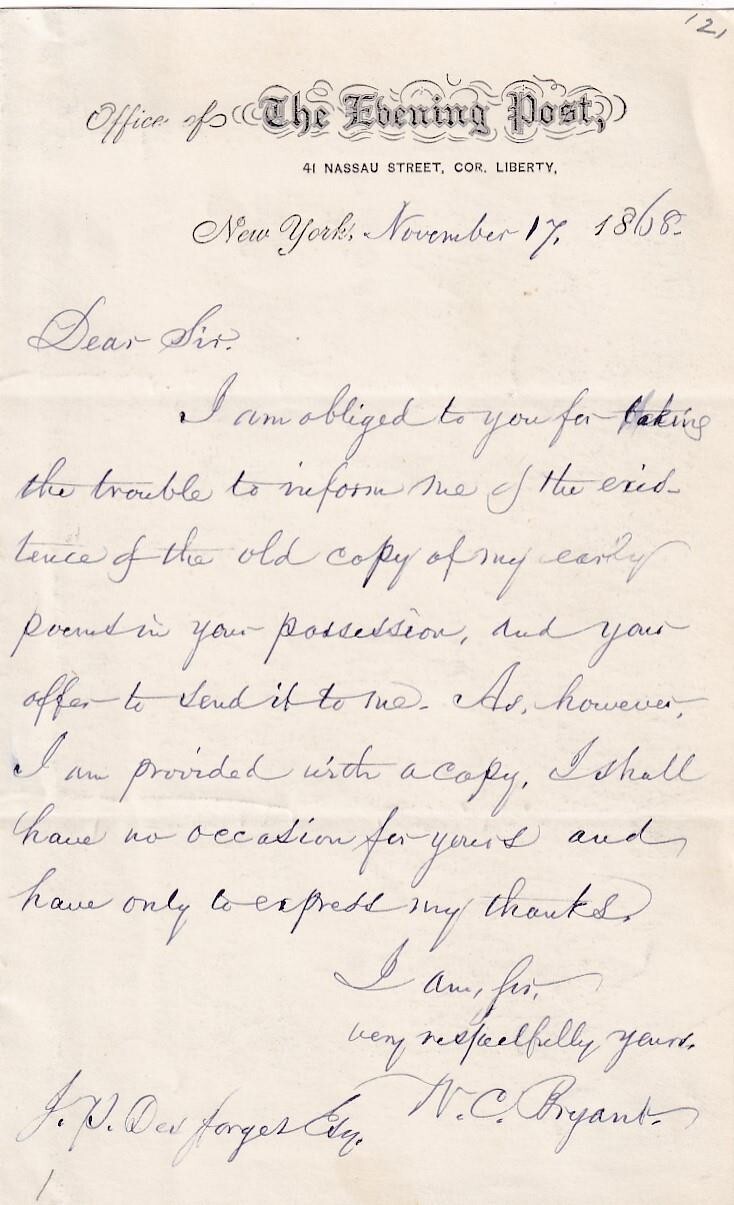 121
Office of The Evening Post,
41 NASSAU STREET, COR. LIBERTY,
New York, November 17, 1868.
Dear Sir.
I am obliged to you for taking
the trouble to inform me of the exis-
tence of the old copy of my early
poems in your possession, and your
offer to send it to me. As, however,
I am provided with a copy, I shall
have no occasion for yours and
have only to express my thanks.
I am, sir,
very respectfully yours.
W. C. Bryant.
J. P. Des Forges Esq.